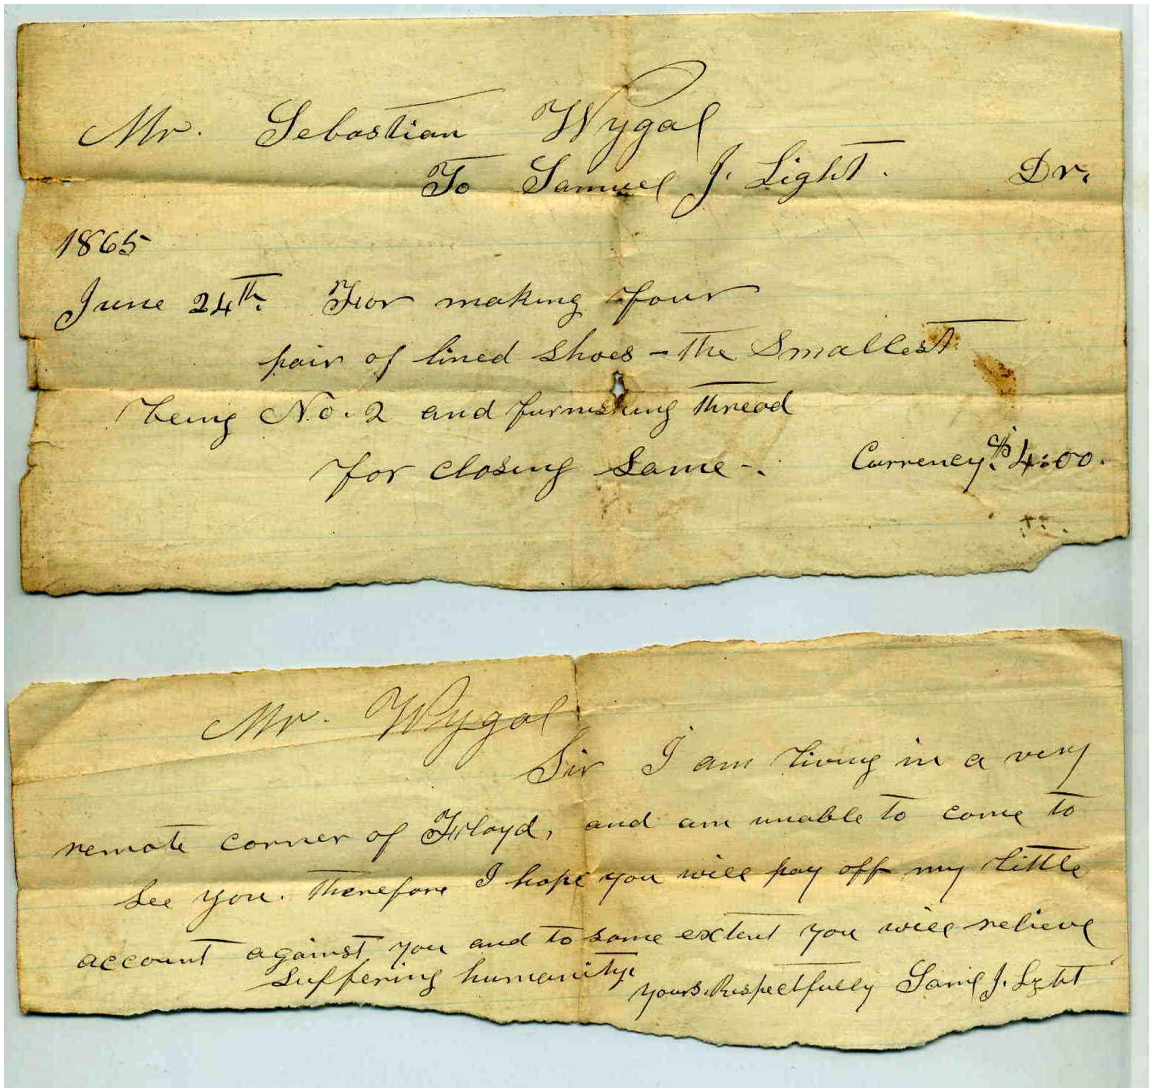 Mr. Sebastian Wygal
To Samuel J. Light. Dr.
1865
June 24th. For making four
pair of lined shoes – the smallest
being No. 2 and furnishing thread
for closing same –. Currency. $4:00.
Mr. Wygal
Sir I am living in a very
remote corner of Floyd, and am unable to come to
see you. Therefore I hope you will pay off my little
account against you and to some extent you will relieve
suffering humanity.
yours. Respectfully Saml J. Light